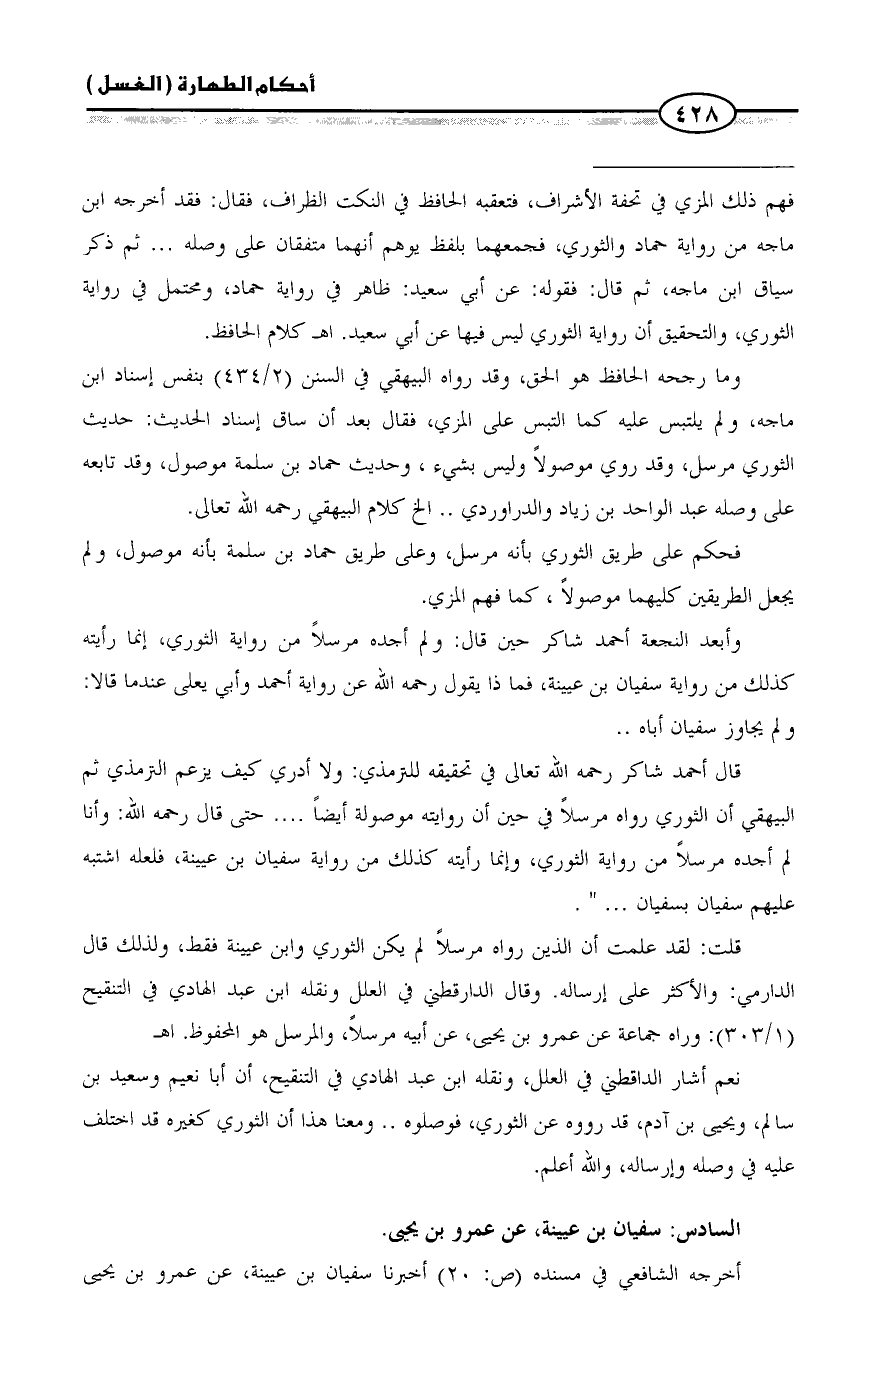 أحكام الطهارة (الغسل)
٤٢٨
فهم ذلك المزي في تحفة الأشراف، فتعقبه الحافظ في النكت الظراف، فقال: فقد أخرجه ابن
ماجه من رواية حماد والثوري، فجمعهما بلفظ يوهم أنهما متفقان على وصله ... ثم ذكر
سياق ابن ماجه، ثم قال: فقوله: عن أبي سعيد: ظاهر في رواية حماد، ومحتمل في رواية
الثوري، والتحقيق أن رواية الثوري ليس فيها عن أبي سعيد. اهـ كلام الحافظ.
وما رجحه الحافظ هو الحق، وقد رواه البيهقي في السنن (٤٣٤/٢) بنفس إسناد ابن
ماجه، ولم يلتبس عليه كما التبس على المزي، فقال بعد أن ساق إسناد الحديث: حديث
الثوري مرسل، وقد روي موصولاً وليس بشيء ، وحديث حماد بن سلمة موصول، وقد تابعه
على وصله عبد الواحد بن زياد والدراوردي .. الخ كلام البيهقي رحمه الله تعالى.
فحكم على طريق الثوري بأنه مرسل، وعلى طريق حماد بن سلمة بأنه موصول، ولم
يجعل الطريقين كليهما موصولاً ، كما فهم المزي.
وأبعد النجعة أحمد شاكر حين قال: ولم أجده مرسلاً من رواية الثوري، إنما رأيته
كذلك من رواية سفيان بن عيينة، فما ذا يقول رحمه الله عن رواية أحمد وأبي يعلى عندما قالا:
ولم يجاوز سفيان أباه ..
قال أحمد شاكر رحمه الله تعالى في تحقيقه للترمذي: ولا أدري كيف يزعم الترمذي ثم
البيهقي أن الثوري رواه مرسلاً في حين أن روايته موصولة أيضاً .... حتى قال رحمه الله: وأنا
لم أجده مرسلاً من رواية الثوري، وإنما رأيته كذلك من رواية سفيان بن عيينة، فلعله اشتبه
عليهم سفيان بسفيان ... " .
قلت: لقد علمت أن الذين رواه مرسلاً لم يكن الثوري وابن عيينة فقط، ولذلك قال
الدارمي: والأكثر على إرساله. وقال الدارقطني في العلل ونقله ابن عبد الهادي في التنقيح
(٣٠٣/١): وراه جماعة عن عمرو بن يحيى، عن أبيه مرسلاً، والمرسل هو المحفوظ. اهـ
نعم أشار الداقطني في العلل، ونقله ابن عبد الهادي في التنقيح، أن أبا نعيم وسعيد بن
سالم، ويحيى بن آدم، قد رووه عن الثوري، فوصلوه .. ومعنا هذا أن الثوري كغيره قد اختلف
عليه في وصله وإرساله، والله أعلم.
السادس: سفيان بن عيينة، عن عمرو بن يحيى.
أخرجه الشافعي في مسنده (ص: ٢٠) أخبرنا سفيان بن عيينة، عن عمرو بن يحيى